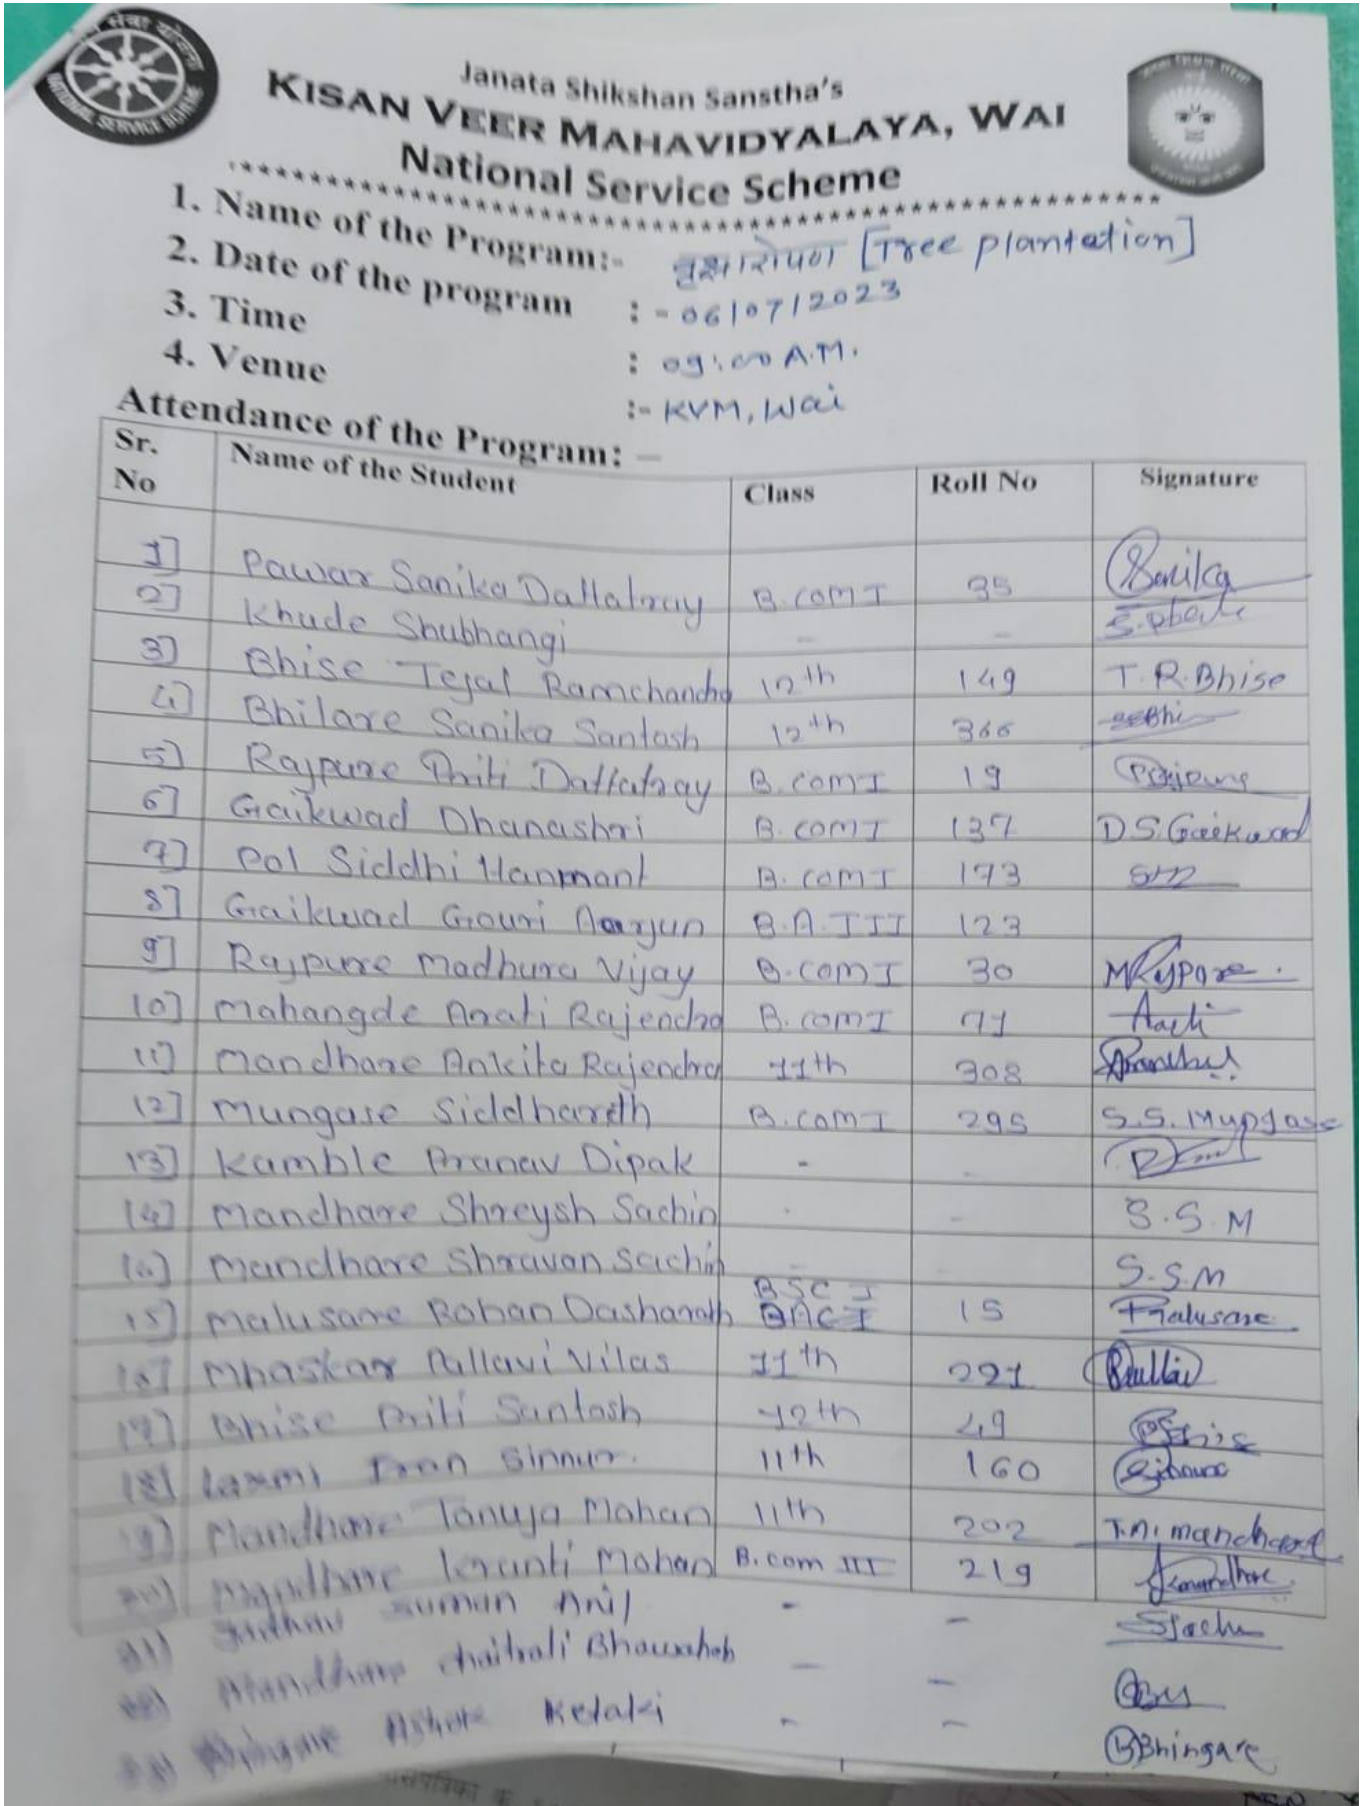 NATIONAL SERVICE SCHEME
Janata Shikshan Sanstha's
KISAN VEER MAHAVIDYALAYA, WAI
National Service Scheme
1. Name of the Program:- वृक्षारोपण [Tree plantation]
2. Date of the program :- 06/07/2023
3. Time : 09:00 A.M.
4. Venue :- KVM, Wai
Attendance of the Program: –
Sr. No Name of the Student Class Roll No Signature
1] Pawar Sanika Dattatray B.com I 35 Sanika
2] Khude Shubhangi - -
3] Bhise Tejal Ramchandra 12th 149 T.R.Bhise
4] Bhilare Sanika Santosh 12th 366
5] Rajpure Priti Dattatray B.com I 19
6] Gaikwad Dhanashri B.com I 137 D.S.Gaikwad
7] Pol Siddhi Hanmant B.com I 173
8] Gaikwad Gouri Aarjun B.A.III 123
9] Rajpure Madhura Vijay B.com I 30 MRajpure.
10] Mahangde Arati Rajendra B.com I 71 Aarti
11] Mandhare Ankita Rajendra 11th 308
12] Mungase Siddharth B.com I 295 S.S. Mungase
13] Kamble Pranav Dipak - -
14] Mandhare Shreysh Sachin - - S.S.M
Mandhare Shravan Sachin - - S.S.M
15] Malusare Rohan Dasharath BSC I 15 Rmalusare
16] Mhaskar Pallavi Vilas 11th 221 Pallavi
17] Bhise Priti Santosh 12th 49
18] Laxmi Sinnur. 11th 160
19] Mandhare Tanuja Mohan 11th 202 T.M. mandhare
20] Mandhare Kranti Mohan B.com III 219 Kmandhare.
21] Suman Anil - -
22] Mandhare Chaitrali Bhausaheb - -
23] Bhingare Ashok Ketaki - - Bhingare